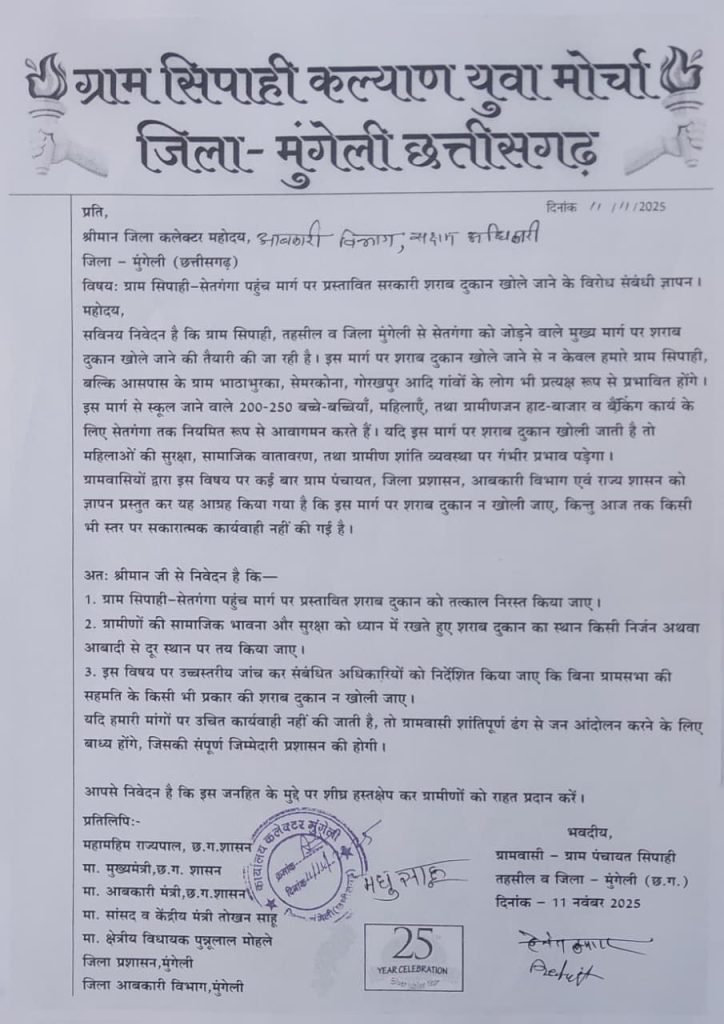 ग्राम सिपाही कल्याण युवा मोर्चा
जिला- मुंगेली छत्तीसगढ़
दिनांक 11/11/2025
प्रति,
श्रीमान जिला कलेक्टर महोदय, आबकारी विभाग, सक्षम अधिकारी
जिला – मुंगेली (छत्तीसगढ़)
विषय: ग्राम सिपाही–सेतगंगा पहुंच मार्ग पर प्रस्तावित सरकारी शराब दुकान खोले जाने के विरोध संबंधी ज्ञापन।
महोदय,
सविनय निवेदन है कि ग्राम सिपाही, तहसील व जिला मुंगेली से सेतगंगा को जोड़ने वाले मुख्य मार्ग पर शराब
दुकान खोले जाने की तैयारी की जा रही है। इस मार्ग पर शराब दुकान खोले जाने से न केवल हमारे ग्राम सिपाही,
बल्कि आसपास के ग्राम भाठाभुरका, सेमरकोना, गोरखपुर आदि गांवों के लोग भी प्रत्यक्ष रूप से प्रभावित होंगे।
इस मार्ग से स्कूल जाने वाले 200-250 बच्चे-बच्चियाँ, महिलाएँ, तथा ग्रामीणजन हाट-बाजार व बैंकिंग कार्य के
लिए सेतगंगा तक नियमित रूप से आवागमन करते हैं। यदि इस मार्ग पर शराब दुकान खोली जाती है तो
महिलाओं की सुरक्षा, सामाजिक वातावरण, तथा ग्रामीण शांति व्यवस्था पर गंभीर प्रभाव पड़ेगा।
ग्रामवासियों द्वारा इस विषय पर कई बार ग्राम पंचायत, जिला प्रशासन, आबकारी विभाग एवं राज्य शासन को
ज्ञापन प्रस्तुत कर यह आग्रह किया गया है कि इस मार्ग पर शराब दुकान न खोली जाए, किन्तु आज तक किसी
भी स्तर पर सकारात्मक कार्यवाही नहीं की गई है।
अतः श्रीमान जी से निवेदन है कि—
1. ग्राम सिपाही–सेतगंगा पहुंच मार्ग पर प्रस्तावित शराब दुकान को तत्काल निरस्त किया जाए।
2. ग्रामीणों की सामाजिक भावना और सुरक्षा को ध्यान में रखते हुए शराब दुकान का स्थान किसी निर्जन अथवा
आबादी से दूर स्थान पर तय किया जाए।
3. इस विषय पर उच्चस्तरीय जांच कर संबंधित अधिकारियों को निर्देशित किया जाए कि बिना ग्रामसभा की
सहमति के किसी भी प्रकार की शराब दुकान न खोली जाए।
यदि हमारी मांगों पर उचित कार्यवाही नहीं की जाती है, तो ग्रामवासी शांतिपूर्ण ढंग से जन आंदोलन करने के लिए
बाध्य होंगे, जिसकी संपूर्ण जिम्मेदारी प्रशासन की होगी।
आपसे निवेदन है कि इस जनहित के मुद्दे पर शीघ्र हस्तक्षेप कर ग्रामीणों को राहत प्रदान करें।
प्रतिलिपि:-
महामहिम राज्यपाल, छ.ग.शासन
मा. मुख्यमंत्री,छ.ग. शासन
मा. आबकारी मंत्री,छ.ग.शासन
मा. सांसद व केंद्रीय मंत्री तोखन साहू
मा. क्षेत्रीय विधायक पुन्नूलाल मोहले
जिला प्रशासन,मुंगेली
जिला आबकारी विभाग,मुंगेली
कार्यालय कलेक्टर मुंगेली
दिनांक
मधु साहू
25
YEAR CELEBRATION
भवदीय,
ग्रामवासी – ग्राम पंचायत सिपाही
तहसील व जिला – मुंगेली (छ.ग.)
दिनांक – 11 नवंबर 2025